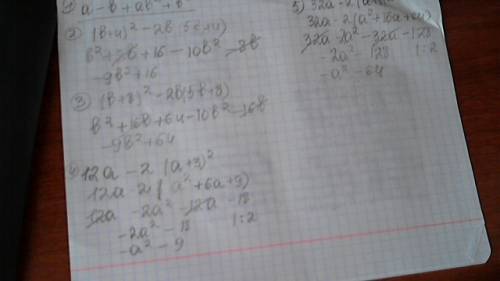 ① a - b + ab² + b²
② (b+4)² - 2b(5b+4)
b² + 8b + 16 - 10b² - 8b
-9b² + 16
③ (b+8)² - 2b(5b+8)
b² + 16b + 64 - 10b² - 16b
-9b² + 64
12a - 2(a+3)²
12a - 2(a² + 6a + 9)
12a - 2a² - 12a - 18
-2a² - 18 |:2
-a² - 9
5) 32a - 2(a+
32a - 2(a² + 16a + 64)
32a - 2a² - 32a - 128
-2a² - 128 |:2
-a² - 64